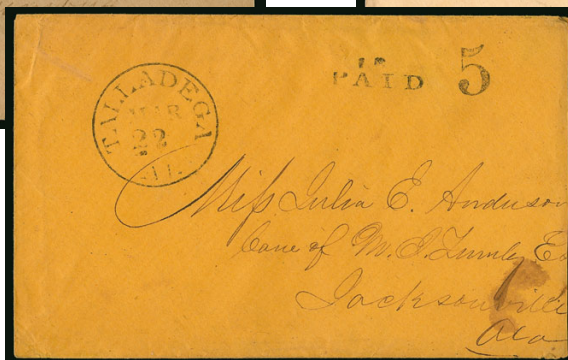 TALLADEGA
MAR
22
PAID 5
Miss Julia E. Anderson
Care of M. J. Turnley
Jacksonville
Ala